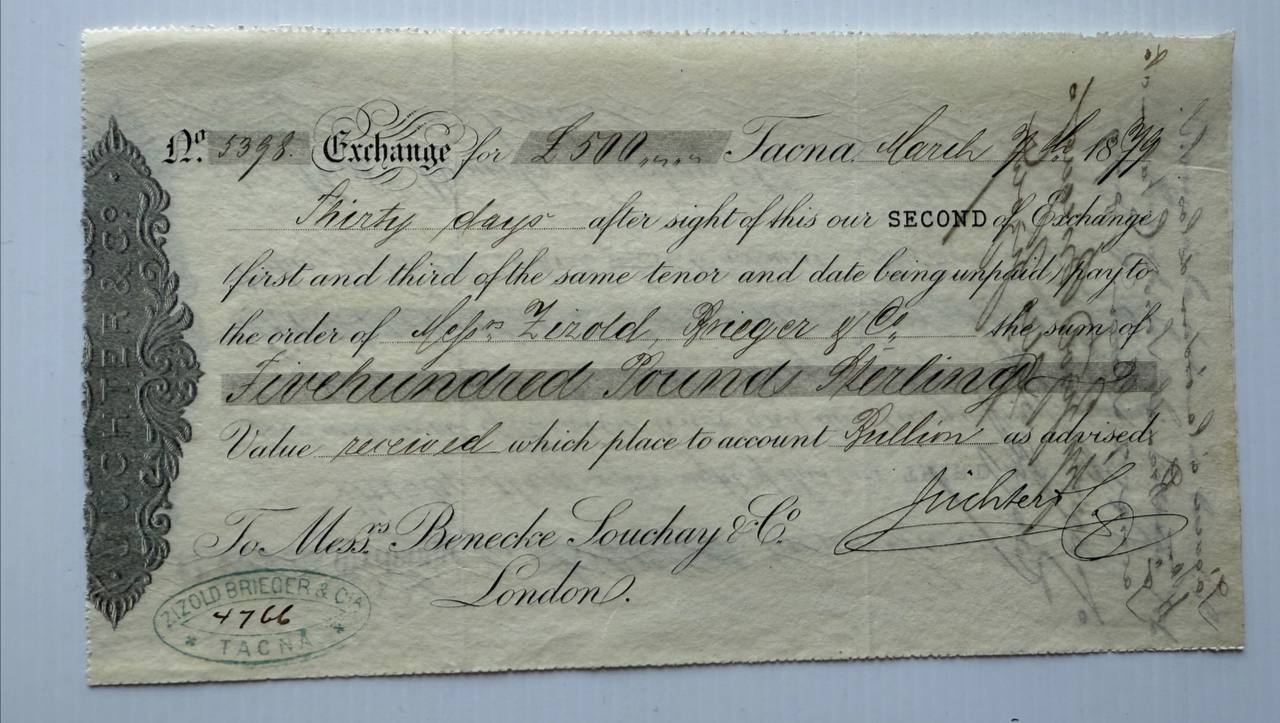 No. 5398. Exchange for £500 Tacna. March 7th 1879
Thirty days after sight of this our SECOND of Exchange
(first and third of the same tenor and date being unpaid) pay to
the order of Messrs Zizold, Brieger & Co. the sum of
Fivehundred Pounds Sterling
Value received which place to account Bullion as advised.
To Messrs. Benecke Souchay & Co.
London.
Juchter & Co
ZIZOLD BRIEGER & CIA
4766
* TACNA *
JUCHTER & CO.